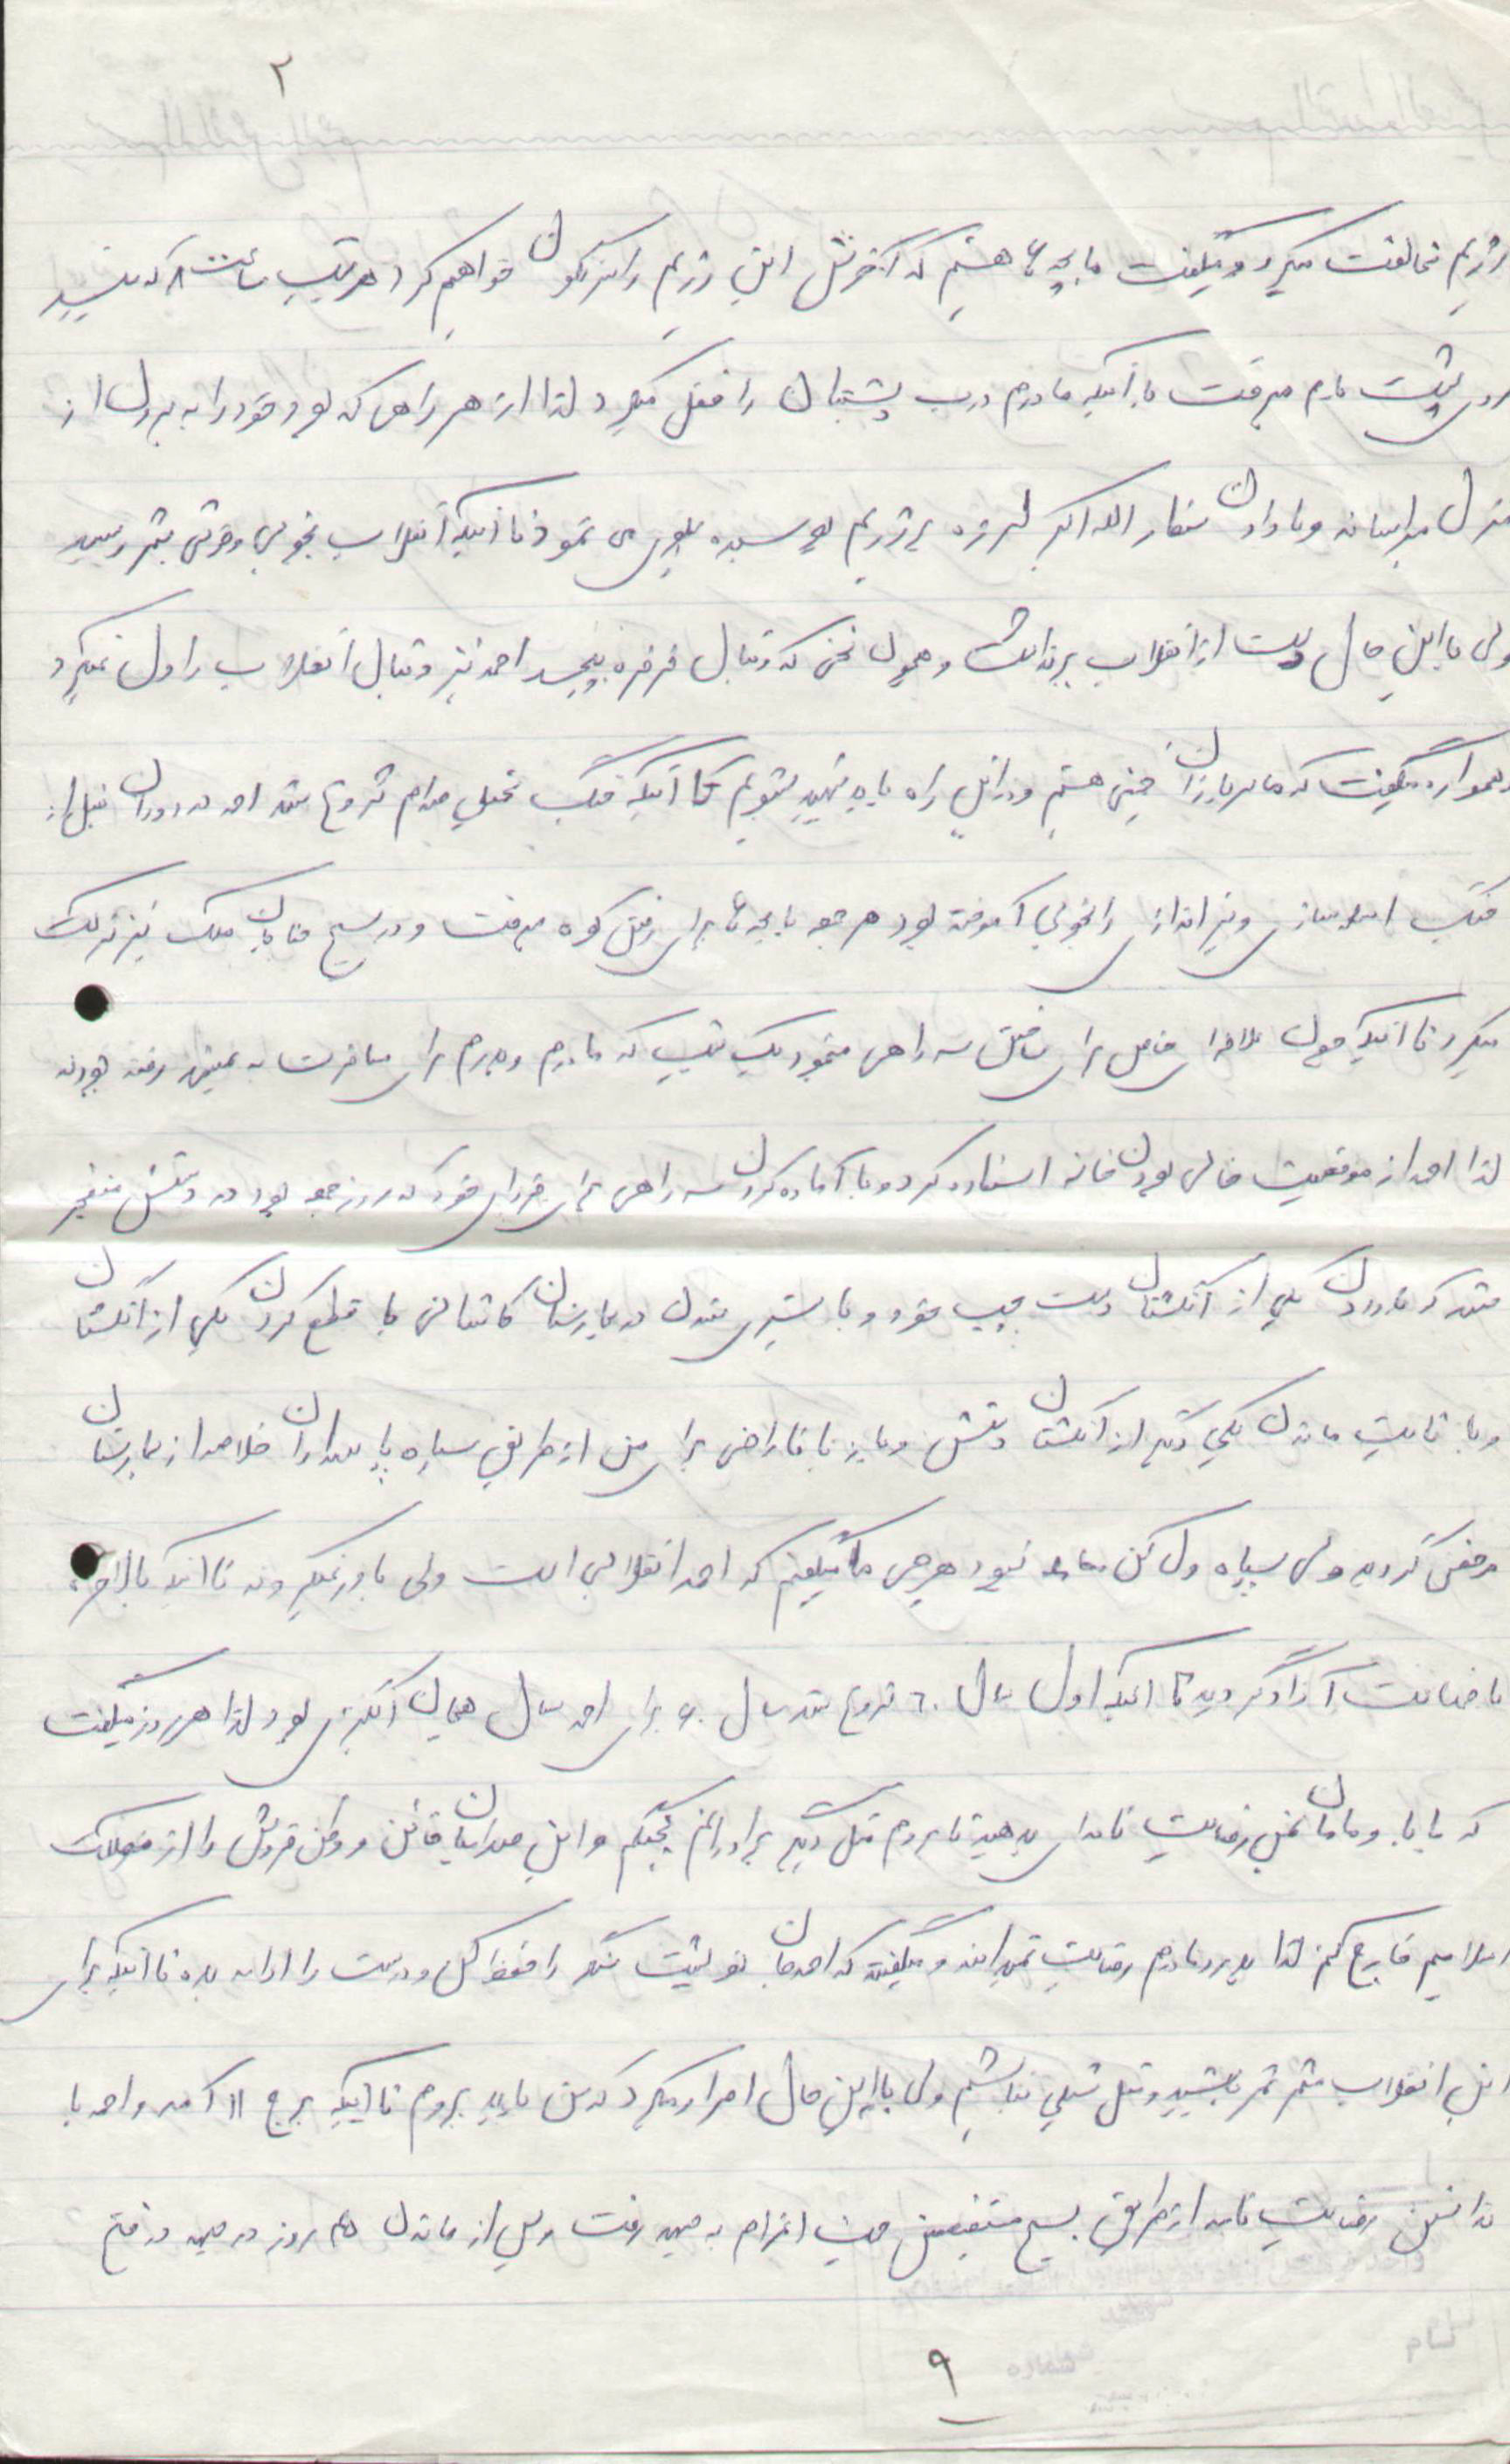 ۲
رژیم مخالفت میکرد و میگفت ما بچه ها هستیم که آخرش این رژیم را سرنگون خواهیم کرد هر شب ساعت ۸ که میشد
روی پشت بام میرفت با آنکه مادرم درب پشتبان را قفل میکرد لذا از هر راهی که بود خود را به بیرون از
منزل میرساند و با دادن شعار الله اکبر لرزه بر رژیم پوسیده پهلوی می نمود تا آنیکه انقلاب بخوبی و خوشی بثمر رسید
ولی با این حال دست از انقلاب برنداشت و همچون نخی که دنبال فرفره بپیچد احمد نیز دنبال انقلاب را ول نمیکرد
و همواره میگفت که ما سربازان خمینی هستیم و در این راه باید شهید بشویم تا آنیکه جنگ تحمیلی صدام شروع شد احمد در دوران قبل از
جنگ اسلحه سازی و تیراندازی را بخوبی آموخته بود هر جمعه با بچه ها برای رفتن کوه میرفت و در بسیج خنابان ملک نیز شرکت
میکرد تا آنیکه چون علاقه ای خاص برای ساختن سه راهی مینمود یک شب که مادرم و پدرم برای مسافرت به خمین رفته بودند
لذا احمد از موقعیت خالی بودن خانه استفاده کرد و با آماده کردن سه راهی برای فردای خود که روز جمعه بود در دستش منفجر
شد که با بردن یکی از انگشتان دست چپ خود و با بستری شدن در بیمارستان کاشانی با قطع کردن یکی از انگشتان
و با ثابت ماندن یکی دیگر از انگشتان دستش و باز با ناراضی برای من از طریق سپاه پاسداران خلاصه از بیمارستان
مرخص گردید ولی سپاه ول کن معامله نبود هرچی ما میگفتیم که احمد انقلابی است ولی باور نمیکردند تا آنیکه بالاخره
با ضمانت آزاد گردید تا آنیکه اول سال ۶۰ شروع شد سال ۶۰ برای احمد سال هجران انگیزی بود لذا هر روز میگفت
که بابا و مامان بمن رضایت نامه ای بدهید تا بروم مثل دیگر برادرانم بجنگم و این صدامیان خائن و وطن فروش را از مملکت
اسلامیم خارج کنم لذا پدر و مادرم رضایت نمیدادند و میگفتند که احمد جان تو پشت سنگر را حفظ کن و درست را ادامه بده تا آنیکه برای
این انقلاب مثمر ثمر باشید و مثل شعلی نباشیم ولی با این حال اصرار میکرد که من باید بروم تا آنیکه برج ۱۱ آمد و احمد با
نداشتن رضایت نامه از طریق بسیج مستضعفین جهت اعزام به جبهه رفت و پس از ماندن ۴۵ روز در جبهه در فتح
۹